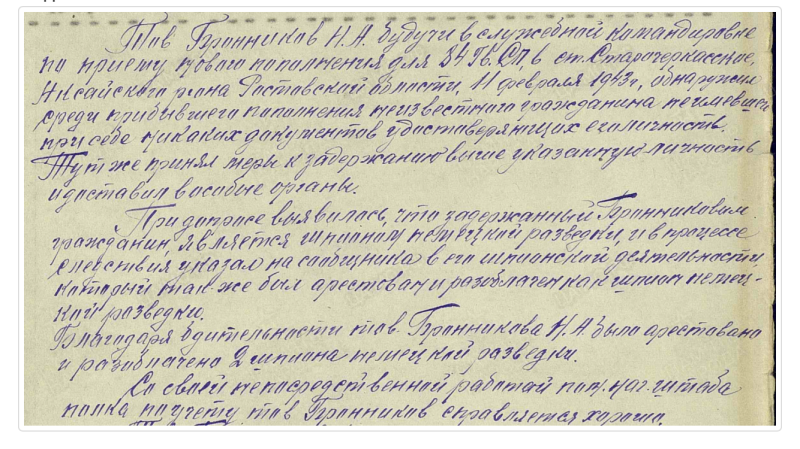 Тов Бронников Н.А. будучи в служебной командировке
по приему нового пополнения для 34 Гв. СП, в ст. Старочеркасское,
Аксайского р-она Ростовской области, 11 февраля 1943 г, обнаружил
среди прибывшего пополнения неизвестного гражданина неимевшего
при себе никаких документов удостоверяющих его личность.
Тут же принял меры к задержанию выше указанную личность
и доставил в особые органы.
При допросе выявилась, что задержанный Бронниковым
гражданин, является шпионом немецкой разведки, и в процессе
следствия указал на сообщника в его шпионской деятельности
который так-же был арестован и разоблачен как шпион немец-
кой разведки.
Благодаря бдительности тов. Бронникова Н.А. было арестовано
и разоблачено 2 шпиона немецкой разведки.
Со своей непосредственной работай пом. нач. штаба
полка по учету тов Бронников справляется хорошо.